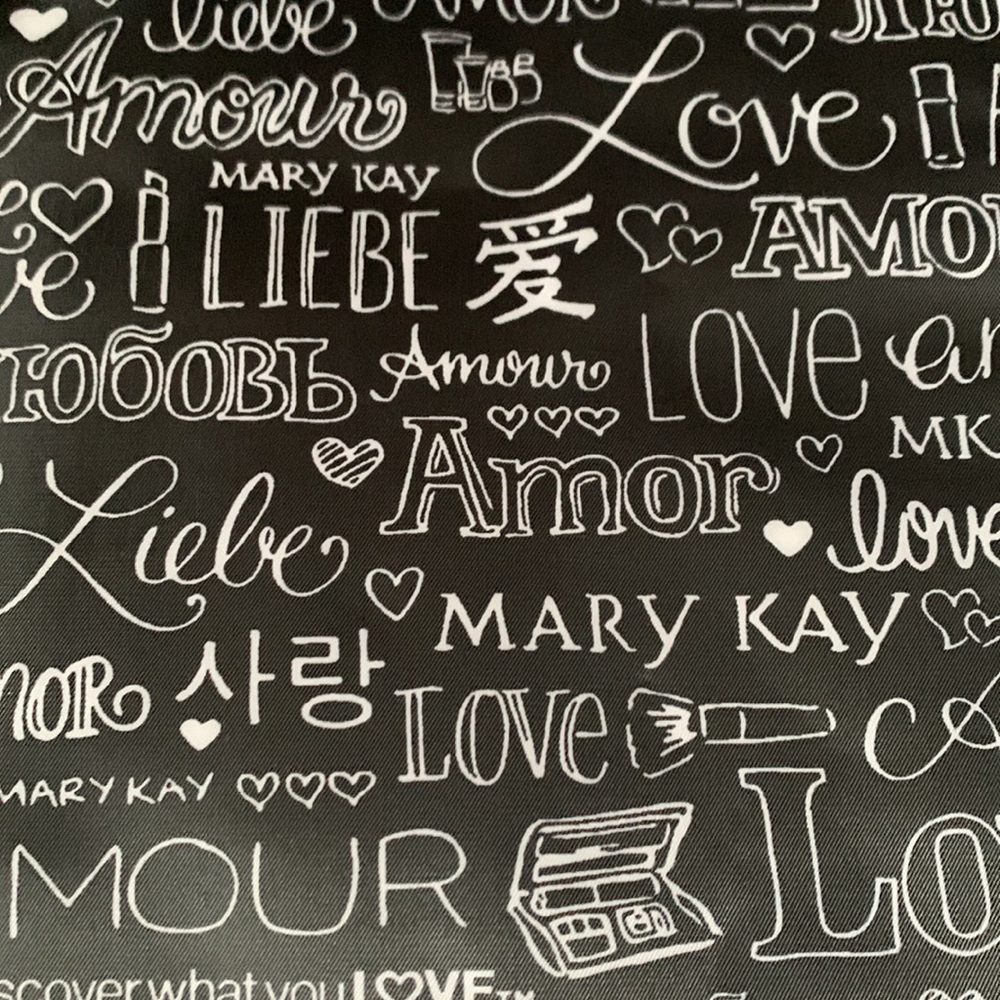 liebe AMOR
Amour Love
MARY KAY
LIEBE 爱 AMO
ve
юбовь Amour LOVE
Amor MK
Liebe love
MARY KAY
MOR 사랑
LOVE
MARY KAY
MOUR Lo
scover what you LOVE™